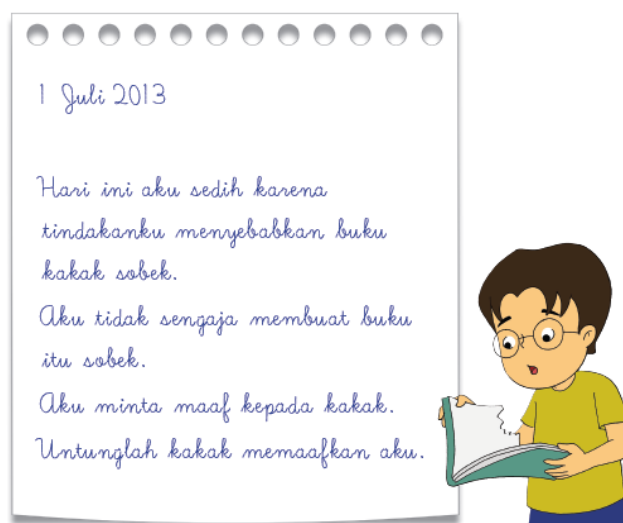 1 Juli 2013
Hari ini aku sedih karena
tindakanku menyebabkan buku
kakak sobek.
Aku tidak sengaja membuat buku
itu sobek.
Aku minta maaf kepada kakak.
Untunglah kakak memaafkan aku.